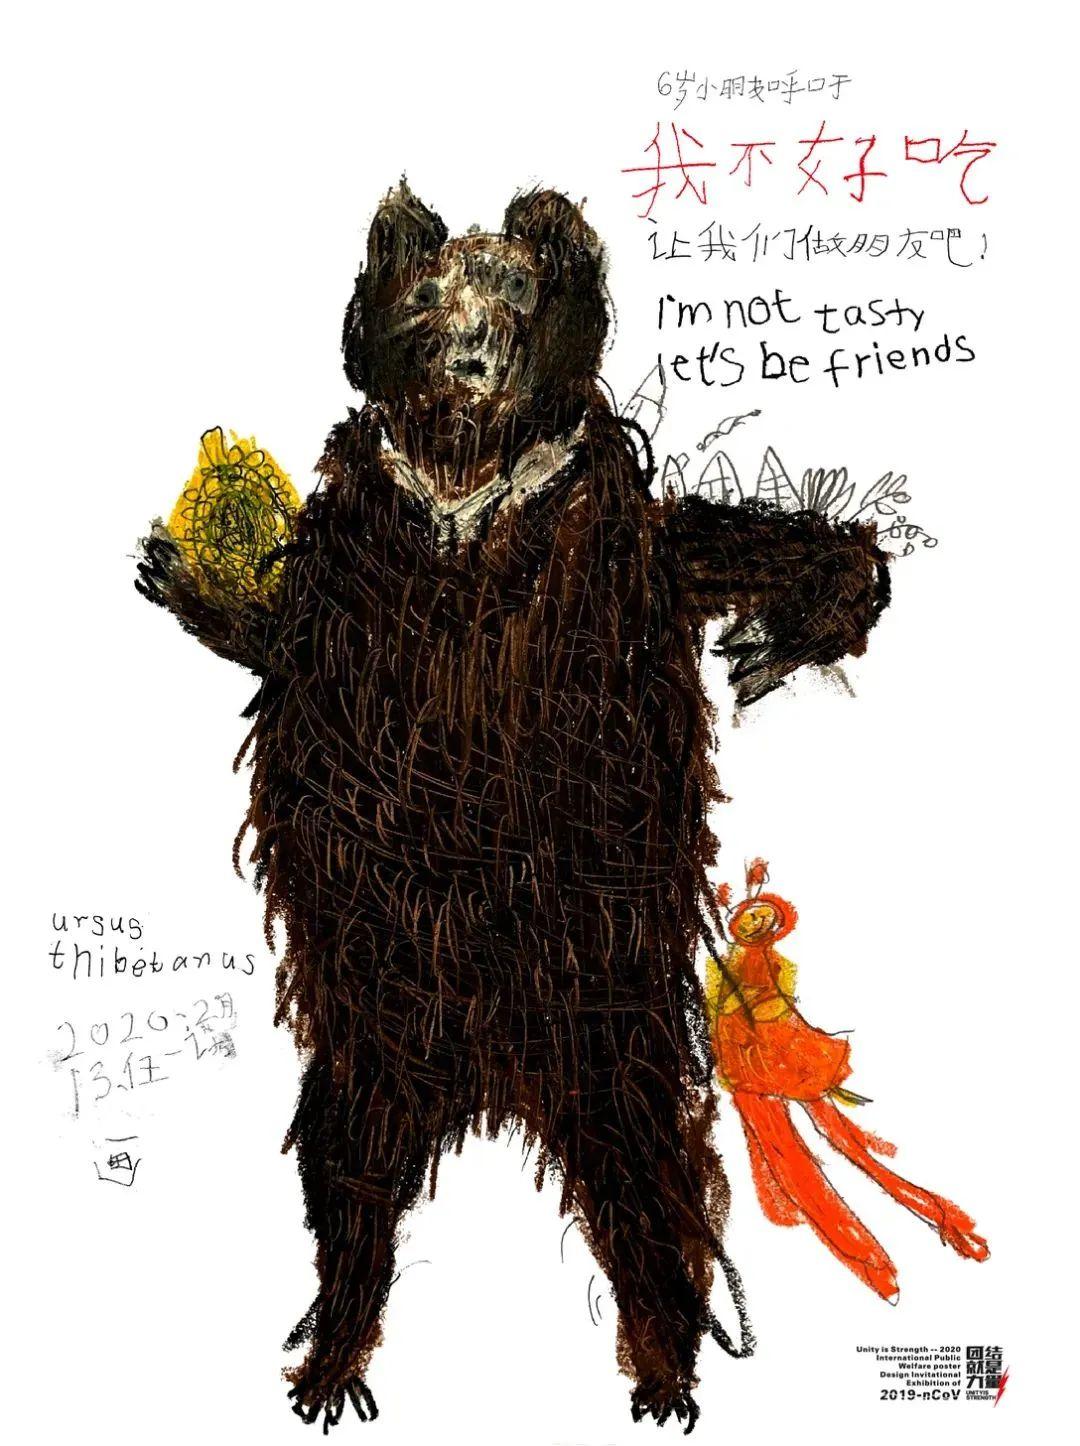 6岁小朋友呼吁
我不好吃
让我们做朋友吧!
I'm not tasty
let's be friends
ursus
thibetanus
2020.2月
13.任一诺
画
Unity is Strength -- 2020
International Public
Welfare poster
Design Invitational
Exhibition of
2019-nCoV
团结
就是
力量
UNITY IS
STRENGTH